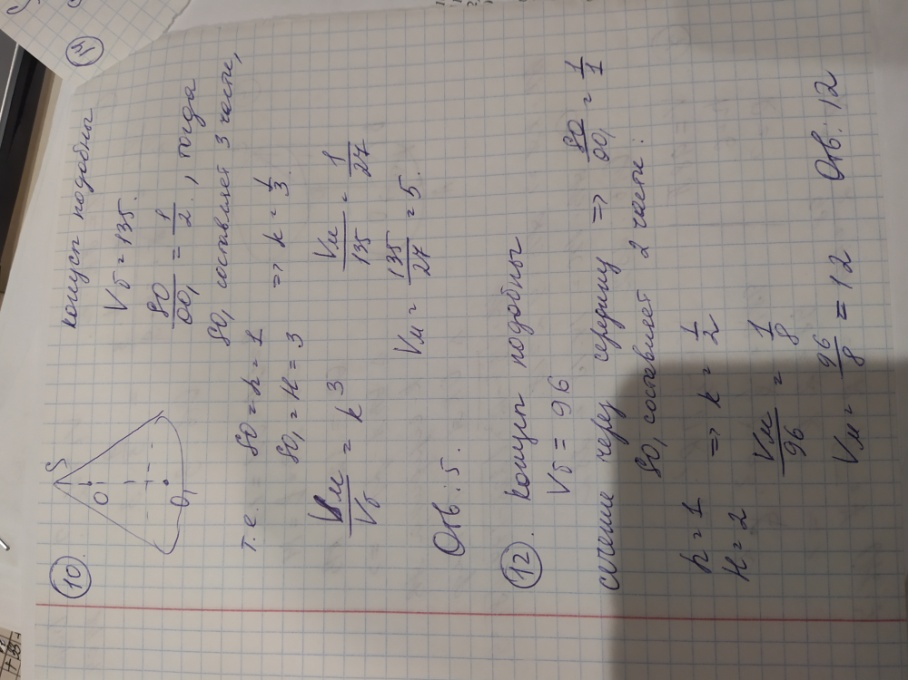 11
10. S
O
O₁
конусы подобны
Vб = 135.
SO/OO₁ = 1/2, тогда
SO₁ составляет 3 части,
т.е. SO = h = 1
SO₁ = H = 3 => k = 1/3.
Vм/Vб = k³ Vм/135 = 1/27
Vм = 135/27 = 5.
Отв: 5.
12. конусы подобны
Vб = 96
сечение через середину => SO/OO₁ = 1/1
SO₁ составляет 2 части:
h = 1
H = 2 => k = 1/2
Vм/96 = 1/8
Vм = 96/8 = 12 Отв: 12